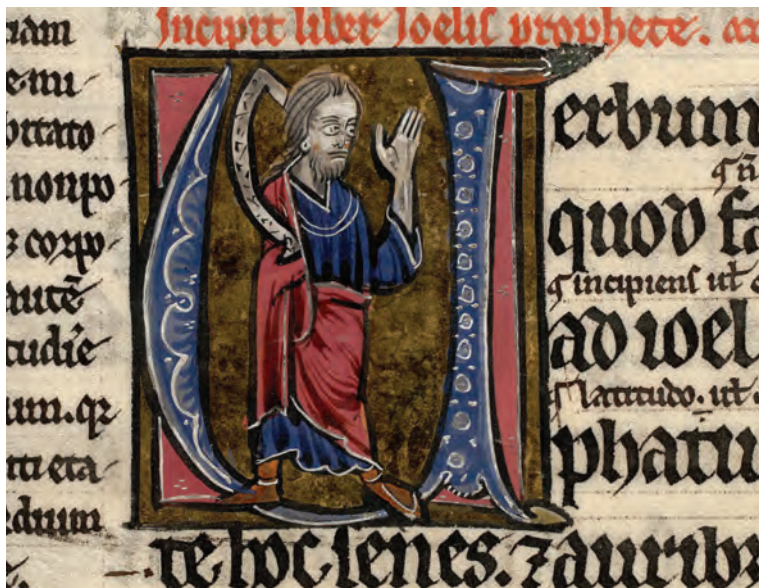 Incipit liber Joelis prophete.
uiam
e mi
ortato
non po
corpo
autē
tudīe
um. qz
ti eta
dium
Verbum
qñ
quod fa
incipiens ut
ad ioel
latitudo. ut
phatu
te hoc senes. ⁊ auribz